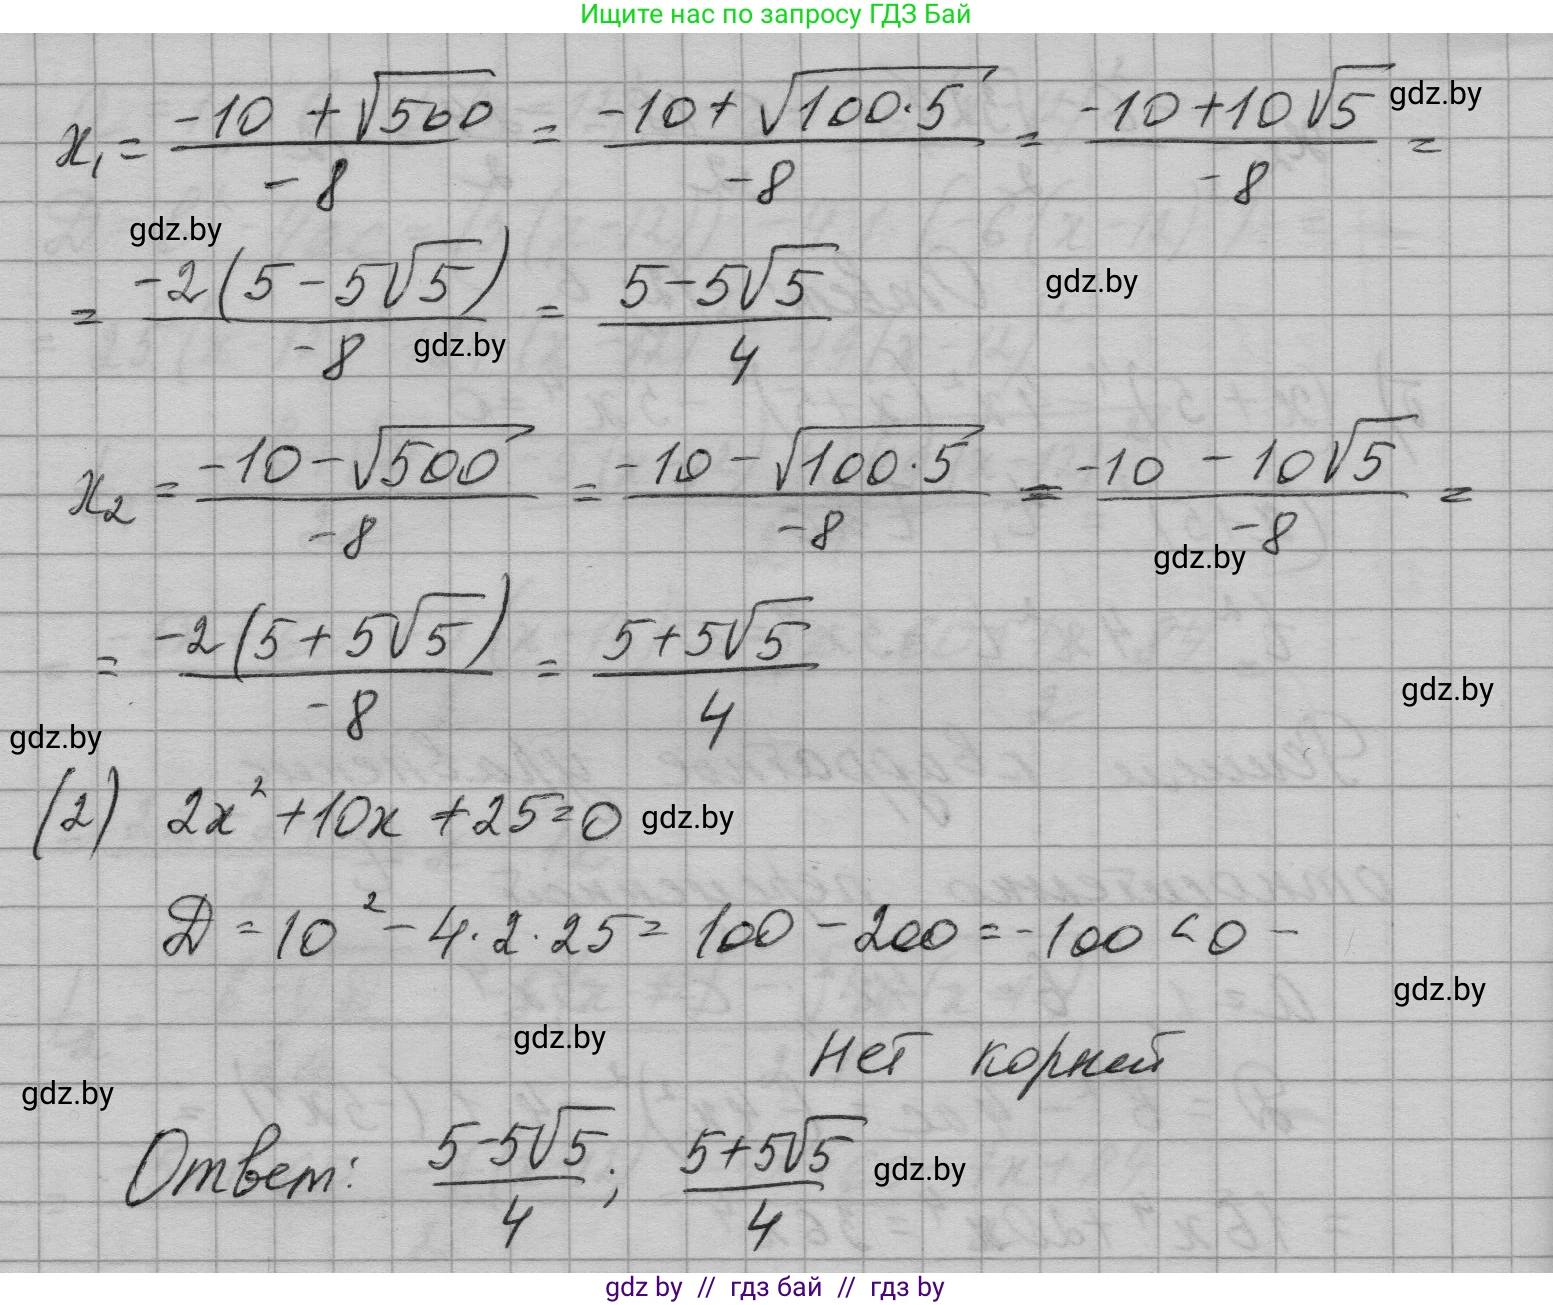 Ищите нас по запросу ГДЗ Бай
x₁ = (-10 + √500)/(-8) = (-10 + √(100·5))/(-8) = (-10 + 10√5)/(-8) =
gdz.by
gdz.by
= (-2(5 - 5√5))/(-8) = (5 - 5√5)/4
gdz.by
gdz.by
x₂ = (-10 - √500)/(-8) = (-10 - √(100·5))/(-8) = (-10 - 10√5)/(-8) =
gdz.by
= (-2(5 + 5√5))/(-8) = (5 + 5√5)/4
gdz.by
gdz.by
(2) 2x² + 10x + 25 = 0
gdz.by
Д = 10² - 4·2·25 = 100 - 200 = -100 < 0 -
gdz.by
gdz.by
нет корней
gdz.by
Ответ: (5 - 5√5)/4; (5 + 5√5)/4
gdz.by
gdz by // гдз бай // гдз by